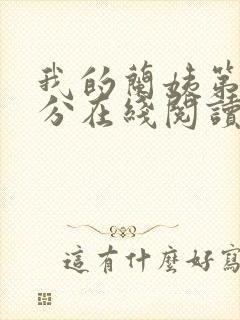 我的蘭姊第
分在綫閱讀
這有什麼好寫